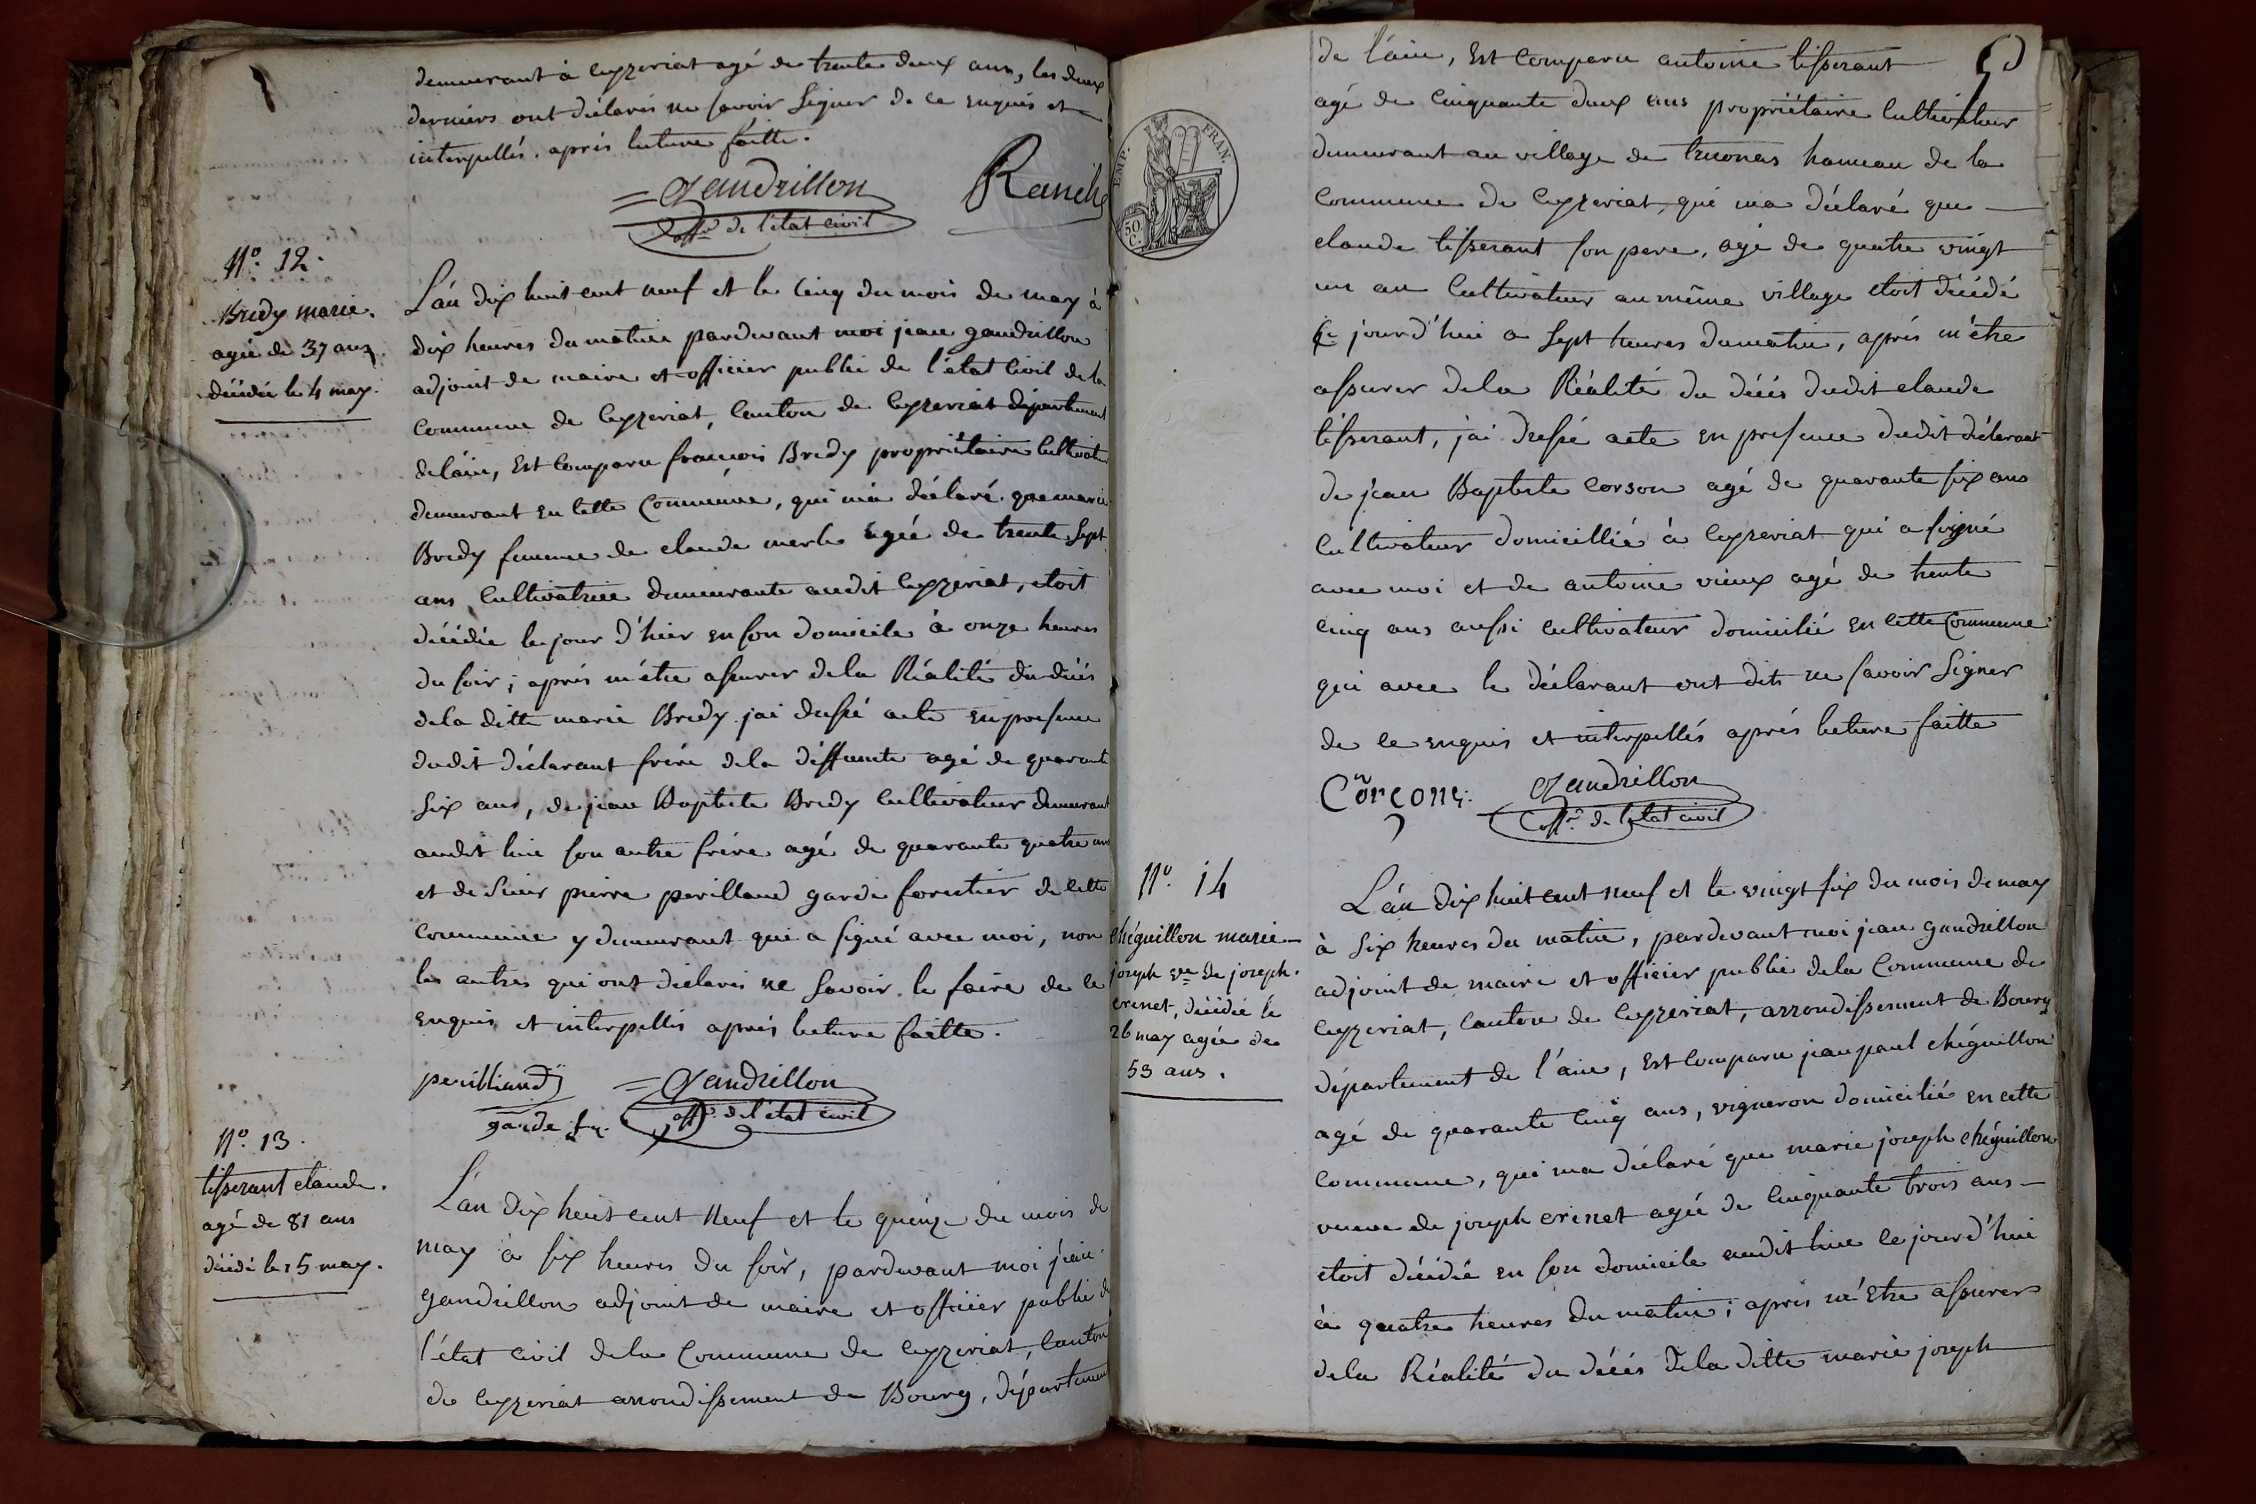 demeurant à ceyzeriat agé de trente deux ans, les deux
derniers ont déclarés ne savoir signer de ce enquis et
interpellés. après lecture faitte.
gandrillon
offr. de l'état civil
Ranche
N.o 12.
Bredy marie.
agée de 37 ans.
décédée le 4 may.
L'an dix huit cent neuf et le cinq du mois de may à
dix heures du matin pardevant moi jean gandrillon
adjoint de maire et officier public de l'état civil de la
commune de ceyzeriat, canton de ceyzeriat département
de l'ain, est comparu françois Bredy propriétaire cultivateur
demeurant en cette commune, qui m'a déclaré que marie
Bredy femme de claude merle agée de trente sept
ans cultivatrice demeurante audit ceyzeriat, etoit
décédée le jour d'hier en son domicile à onze heures
du soir; après m'être assurer dela Réalité du décés
dela ditte marie Bredy jai dressé acte en presence
dudit déclarant frére dela déffunte agé de quarante
six ans, de jean Baptiste Bredy cultivateur demeurant
audit lieu son autre frére agé de quarante quatre ans
et de sieur pierre perilland garde forestier de cette
commune y demeurant qui a signé avec moi, non
les autres qui ont déclarés ne savoir le faire de ce
enquis et interpellés après lecture faitte.
perilliand
garde f.r.
gandrillon
offr. de l'état civil
N.o 13.
tisserant claude.
agé de 81 ans
décédé le 15 may.
L'an dix huit cent neuf et le quinze du mois de
may à six heures du soir, pardevant moi jean
gandrillon adjoint de maire et officier public de
l'état civil dela commune de ceyzeriat, canton
de ceyzeriat arrondissement de Bourg, département
50
EMP. FRAN.
50 C.
de l'ain, est comparu antoine tisserant
agé de cinquante deux ans propriétaire cultivateur
demeurant au village de tréconas hameau de la
commune de ceyzeriat, qui ma déclaré que
claude tisserant son pere, agé de quatre vingt
un an cultivateur au même village etoit décédé
ce jourd'hui a sept heures du matin, après m'être
assurer dela Réalité du décés dudit claude
tisserant, jai dressé acte en presence dudit déclarant
de jean Baptiste corson agé de quarante six ans
cultivateur domicillié à ceyzeriat qui a signé
avec moi et de antoine vieux agé de trente
cinq ans aussi cultivateur domicilié en cette commune
qui avec le déclarant ont dits ne savoir signer
de ce enquis et interpellés après lecture faitte
Corçon
gandrillon
offr. de l'état civil
N.o 14
chéguillon marie
joseph vve de joseph
crenet, décédée le
26 may agée de
53 ans.
L'an dix huit cent neuf et le vingt six du mois de may
à six heures du matin, pardevant moi jean gandrillon
adjoint de maire et officier public dela commune de
ceyzeriat, canton de ceyzeriat, arrondissement de Bourg
département de l'ain, est comparu jean paul chéguillon
agé de quarante cinq ans, vigneron domicilié en cette
commune, qui ma déclaré que marie joseph chéguillon
veuve de joseph crenet agée de cinquante trois ans
etoit décédée en son domicile audit lieu ce jourd'hui
à quatre heures du matin; après m'être assurer
dela Réalité du décés dela ditte marie joseph